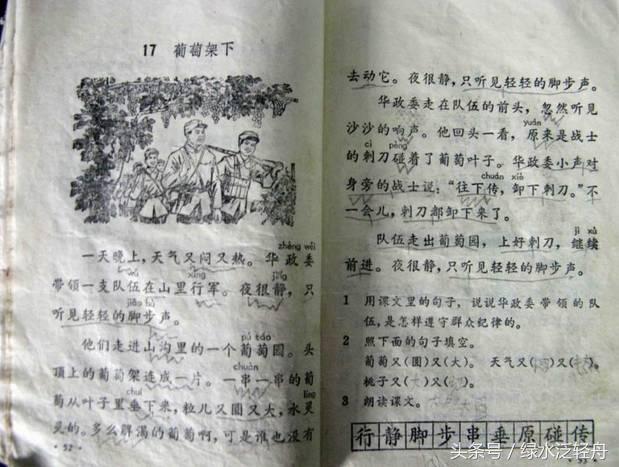 17 葡萄架下
zhèng wěi
一天晚上，天气又闷又热。华政委
xíng jìng
带领一支队伍在山里行军。夜很静，只
jiǎo bù
听见轻轻的脚步声。
pú táo
他们走进山沟里的一个葡萄园。头
chuàn
顶上的葡萄架连成一片。一串一串的葡
chuí líng
萄从叶子里垂下来，粒儿又圆又大，水灵
灵的。多么解渴的葡萄啊，可是谁也没有
·52·
去动它。夜很静，只听见轻轻的脚步声。
华政委走在队伍的前头，忽然听见
yuán
沙沙的响声。他回头一看，原来是战士
cì pèng
的刺刀碰着了葡萄叶子。华政委小声对
chuán xiè
身旁的战士说：“往下传，卸下刺刀。”不
一会儿，刺刀都卸下来了。
jì xù
队伍走出葡萄园，上好刺刀，继续
前进。夜很静，只听见轻轻的脚步声。
1 用课文里的句子，说说华政委带领的队
伍，是怎样遵守群众纪律的。
2 照下面的句子填空。
葡萄又(圆)又(大)。 天气又( )又( )。
桃子又( )又( )。
3 朗读课文。
行静脚步串垂原碰传
53
头条号／绿水泛轻舟